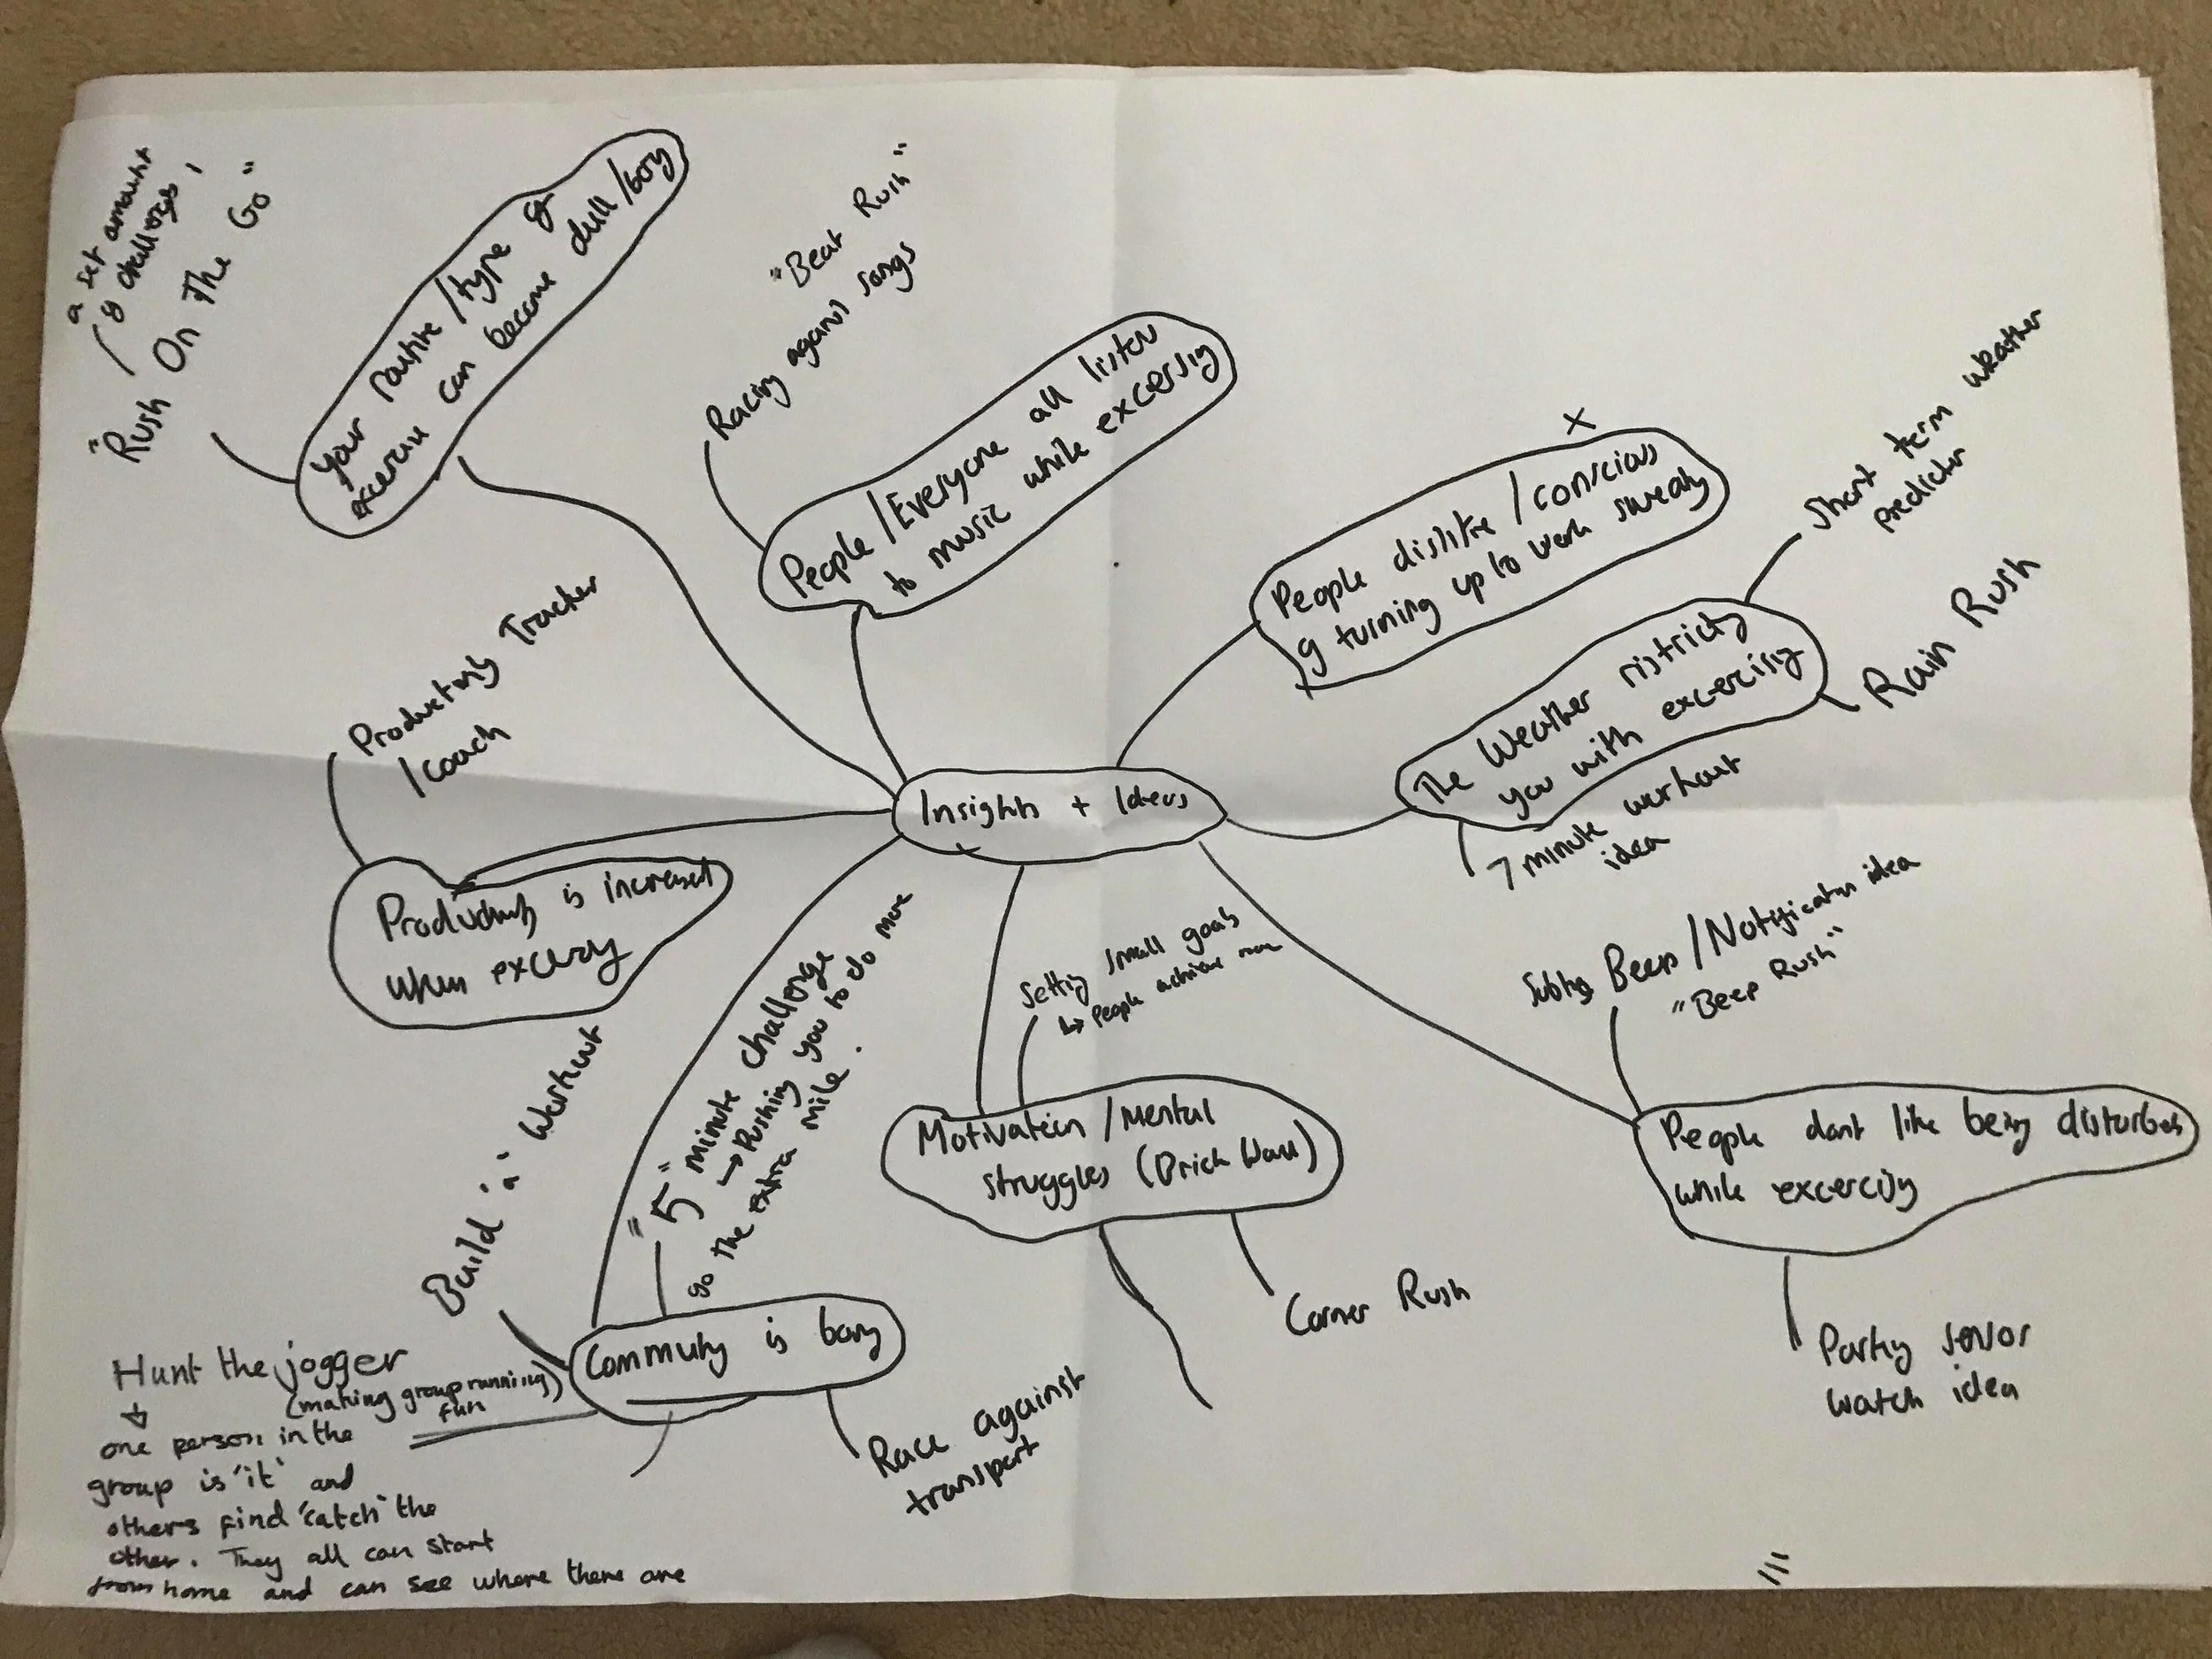 a set amount
of challenges
"Rush On The Go"
your routine / type of
excercise can become dull / boring
"Beat Rush"
Racing against songs
People / Everyone all listen
to music while excersig
X
People dislike / conscious
of turning up to work sweaty
Short term weather
predicter
The Weather ristricts
you with excercisig
Rain Rush
7 minute workout
idea
Productivity Tracker
/ coach
Insights + Ideas
Productivity is increased
when
Subtle Beep / Notification idea
"Beep Rush"
People dont like being disturbed
while
Parking sensor
watch idea
Setting small goals
↳ People achieve more
Motivation / Mental
struggles (Brick Wall)
Corner Rush
"5" minute challenge
→ Pushing you to do more
go the extra mile.
Build 'a' Workout
Commuting is boring
Race against
transport
Hunt the jogger
(making group running)
fun
↓
one person in the
group is 'it' and
others find 'catch' the
other. They all can start
from home and can see where there are